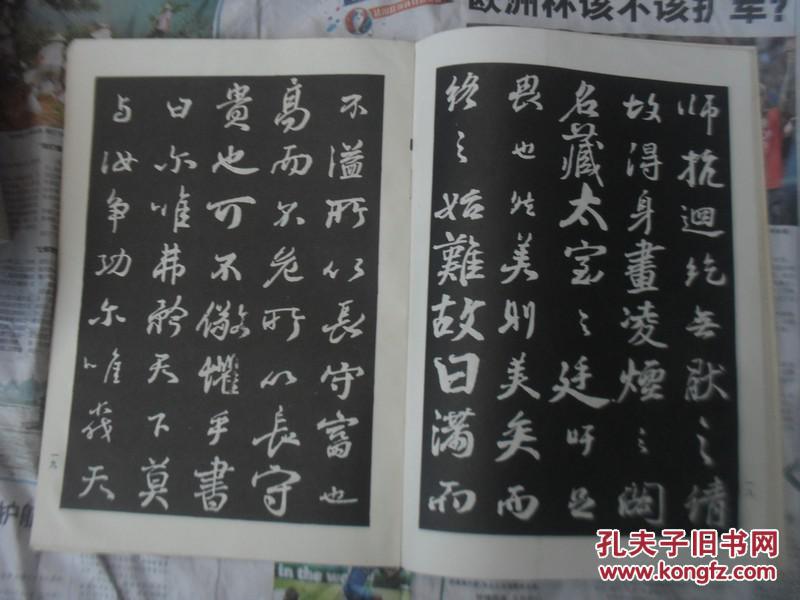 欧洲杯该不该扩军?
师抗迴纥无猒之請
故得身畫凌煙之閣
名藏太室之廷吁足
畏也然美則美矣而
終之始難故曰滿而
一八
不溢所以長守富也
高而不危所以長守
貴也可不儆懼乎書
曰尔唯弗矜天下莫
与汝争功尔唯不伐天
一九
in the w
孔夫子旧书网
www.kongfz.com